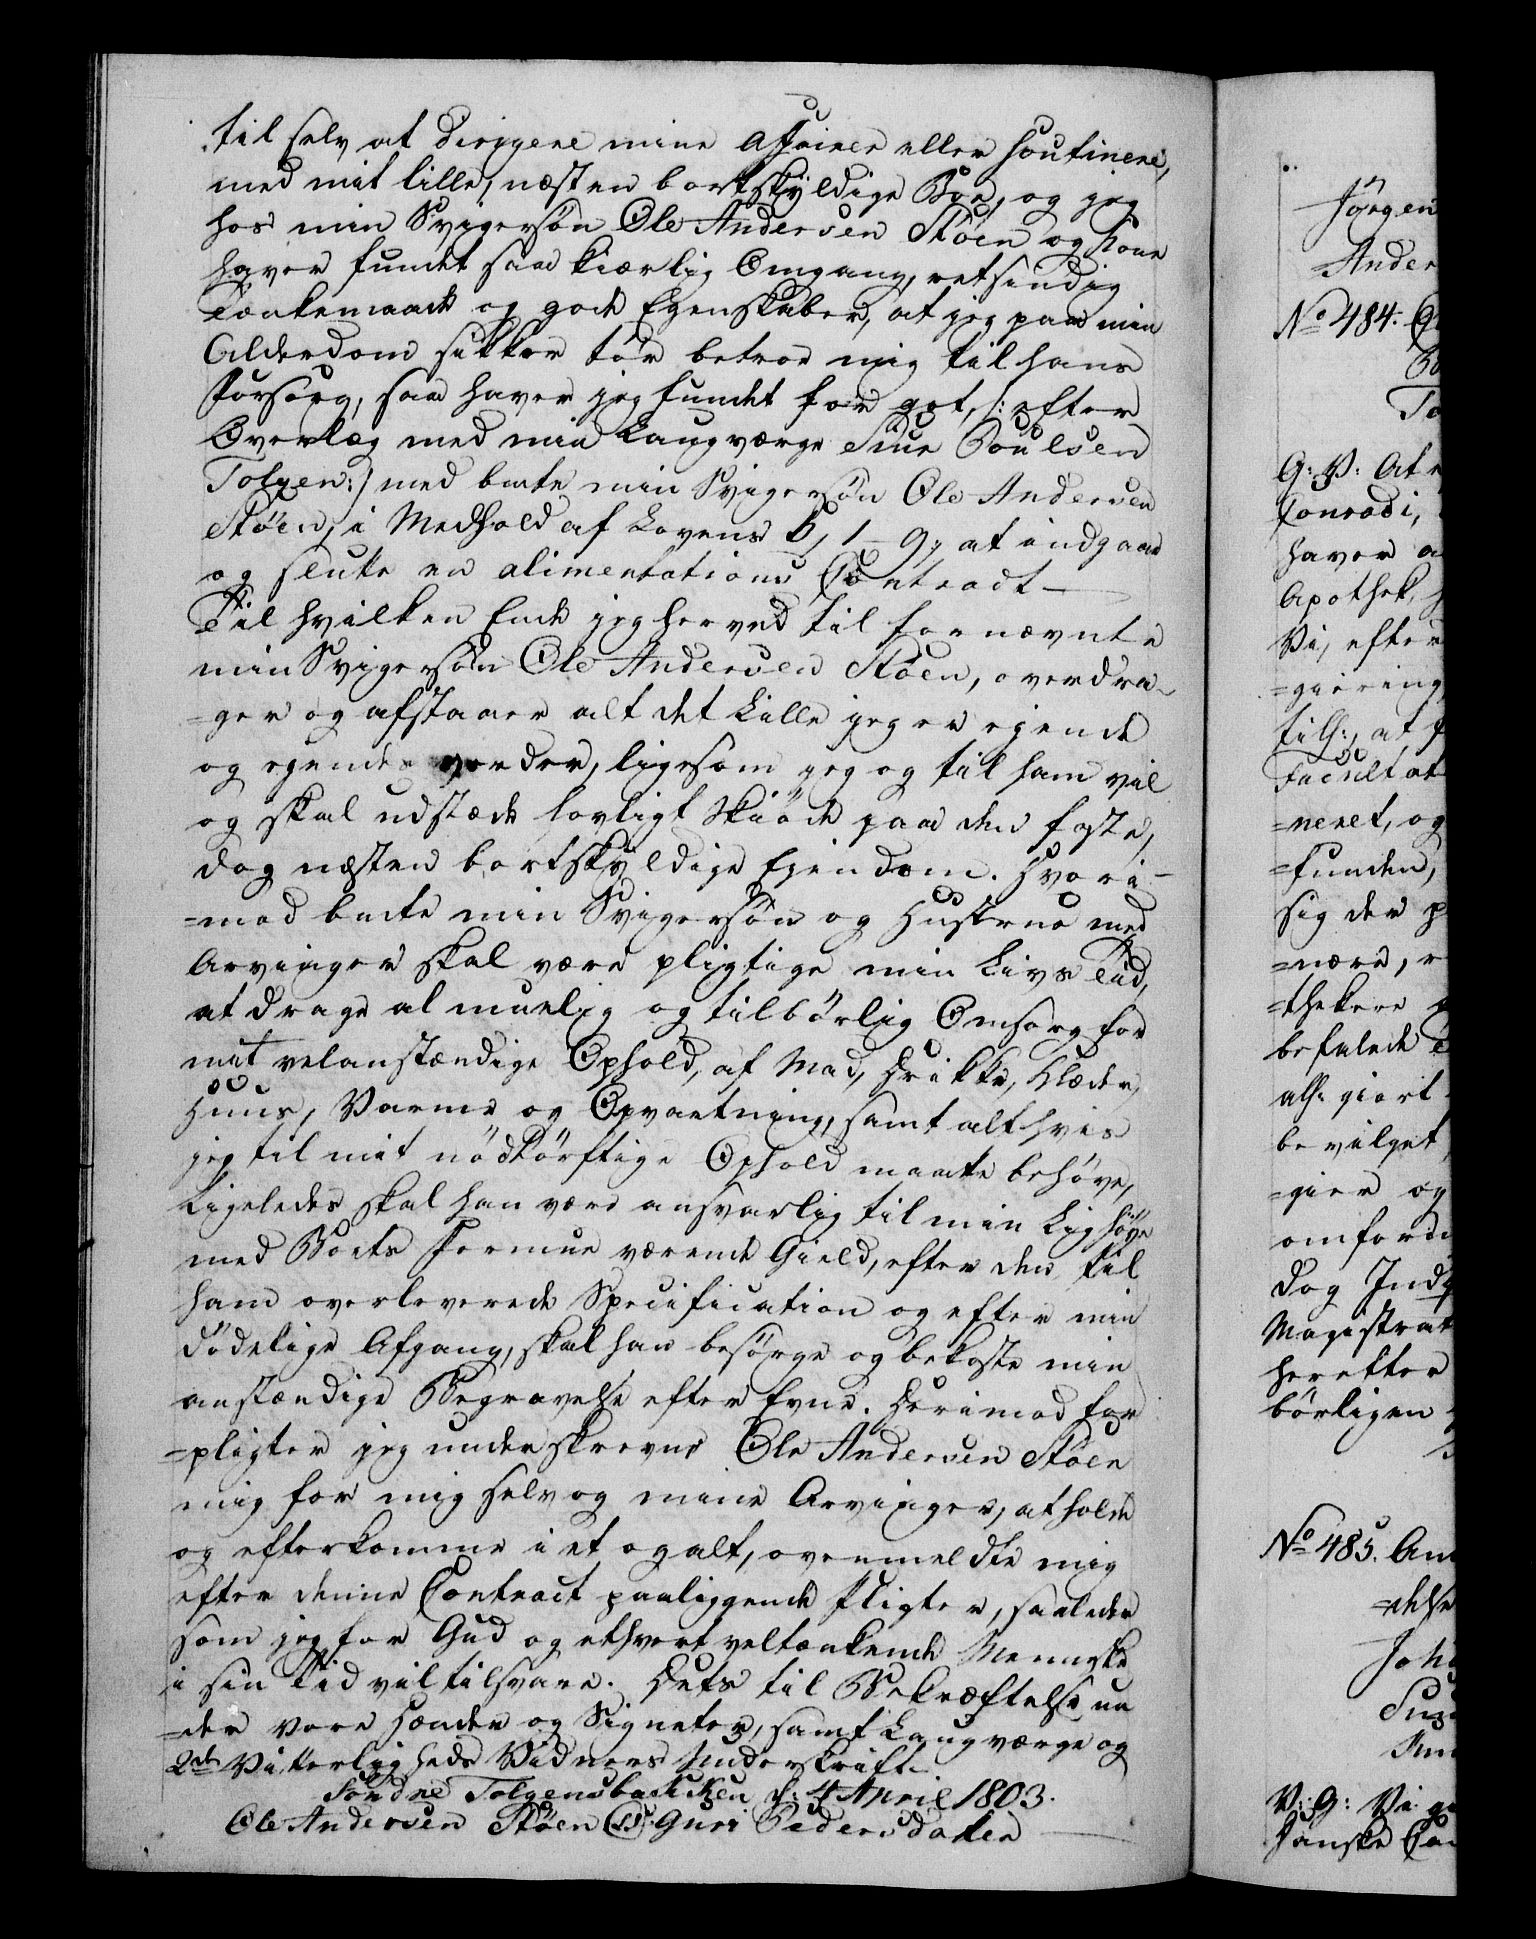 til selv at dirigere mine Affairer eller soutinere,
med mit lille, næsten bortskyldige Boe, og jeg
hos min Svigersøn Ole Andersen Støen og Kone
haver fundet saa kiærlig Omgang, retsindig
Tænkemaade og gode Egenskaber, at jeg paa min
Alderdom sikker tør betroe mig til hans
Forsorg, saa haver jeg fundet for got, /: efter
Overlæg med min Laugværge Siur Poulsen
Tolgen :/ med bemte min Svigersøn Ole Andersen
Støen, i Medhold af Lovens 5, 1 - 9, at indgaae
og slutte en alimentations Contract —
Til hvilken Ende jeg herved til fornævnte
min Svigersøn Ole Andersen Støen, overdra-
=ger og afstaaer alt det Lille jeg er ejende
og ejendes vorder, ligesom jeg og til ham vil
og skal udstæde lovligt Skiøde paa den faste,
dog næsten bortskyldige Ejendom. Hvori-
=mod bemte min Svigersøn og Hustrue med
Arvinger skal være pligtige min Livs Tid,
at drage al muelig og tilbørlig Omsorg for
mit velanstændige Ophold, af Mad, Drikke, Klæder,
Huus, Varme og Opvartning, samt alt hvis
jeg til mit nødtørftige Ophold maatte behøve,
Ligeledes skal han være ansvarlig til min Lighøye
med Boets Formue værende Gield, efter den til
ham overleverede Specification og efter min
dødelige Afgang, skal han besørge og bekoste min
anstændige Begravelse efter Evne. Derimod for
=pligter jeg underskrevne Ole Andersen Støen
mig for mig selv og mine Arvinger, at holde
og efterkomme i et og alt, ovenmeldte mig
efter denne Contract paaliggende Pligter, saaledes
som jeg for Gud og ethvert veltænkende Menneske
i sin Tid vil tilsvare. Dets til Bekræftelse un
=der vore Hænder og Signeter, samt Laugværge og
2de Vitterligheds Vidners Underskrift.
Søndre Tolgensbakken d: 4 April 1803.
Ole Andersen Støen (LS) Guri Pedersdatter
Jørgen
Ander
No 484.
G: V: At
Conradi,
haver a
Apothek,
Vi, efter
=giering
till:, at
Facultat
=neret, og
=funden,
sig der p
=nære, e
=thekere
befalede
alle. giort
bevilget
=gier og
omford
dog Ind
Magistrat
herefter
børligen
No 485. An
=delse
Joh
V: G: Vi g
danske Can